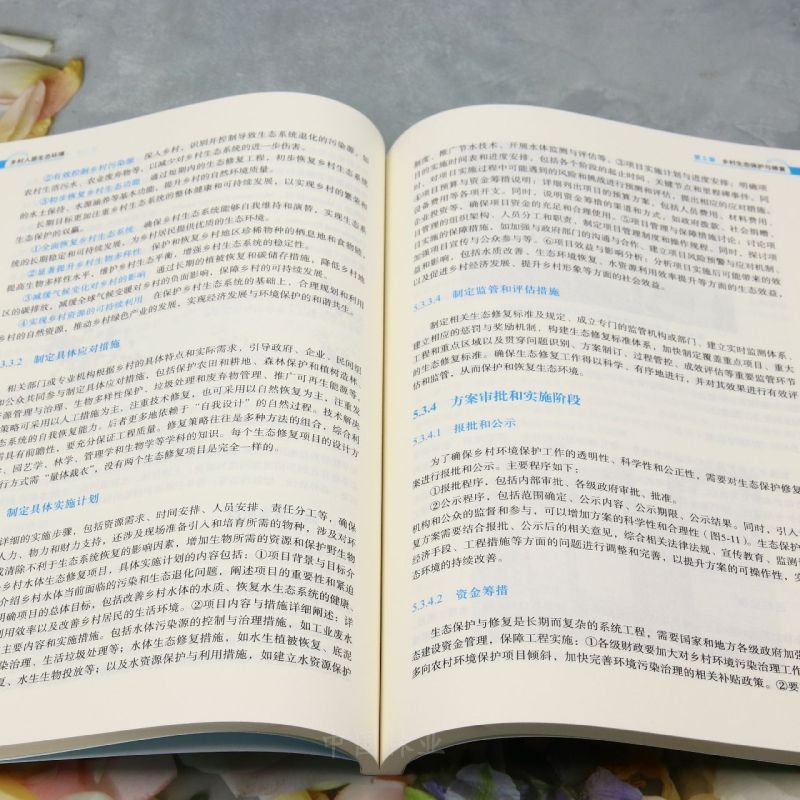 乡村人居生态环境
②有效控制乡村污染源 深入乡村，识别并控制导致生态系统退化的污染源，如
农村生活污水、农业废弃物等，以减少对乡村生态系统的进一步伤害。
③初步恢复乡村生态功能 通过短期内的生态修复工程，初步恢复乡村生态系统
的水土保持、水源涵养等基本功能，提升乡村的自然环境质量。
长期目标更加注重乡村生态系统的整体健康和可持续发展，以实现乡村的繁荣和
生态保护的双赢。
①全面恢复乡村生态系统 确保乡村生态系统能够自我维持和演替，实现生态系
统的长期稳定和可持续发展，为乡村居民提供优质的生态环境。
②显著提升乡村生物多样性 保护和恢复乡村地区珍稀物种的栖息地和食物链，
提高生物多样性水平，维护乡村生态平衡，增强乡村生态系统的稳定性。
③减缓气候变化对乡村的影响 通过长期的植被恢复和碳储存措施，降低乡村地
区的碳排放，减缓全球气候变暖对乡村的负面影响，保障乡村的可持续发展。
④实现乡村资源的可持续利用 在保护乡村生态系统的基础上，合理规划和利用
乡村的自然资源，推动乡村绿色产业的发展，实现经济发展与环境保护的和谐共生。
3.3.2 制定具体应对措施
相关部门或专业机构根据乡村的具体特点和实际需求，引导政府、企业、民间组
和公众共同参与制定具体应对措施，包括保护农田和耕地、森林保护和植树造林、
资源管理与治理、生物多样性保护、垃圾处理和废弃物管理、推广可再生能源等。
策略可采用以人工措施为主，注重技术修复，也可采用以自然恢复为主，注重发
态系统的自我恢复能力。后者更多地依赖于“自我设计”的自然过程。技术解决
需具有前瞻性，要充分保证工程质量。修复策略往往是多种方法的组合，综合利
、园艺学、林学、管理学和生物学等学科的知识。每个生态修复项目的设计方
行方式需“量体裁衣”，没有两个生态修复项目是完全一样的。
制定具体实施计划
详细的实施步骤，包括资源需求、时间安排、人员安排、责任分工等，确保
人力、物力和财力支持，还涉及现场准备引入和培育所需的物种，涉及对环
或清除不利于生态系统恢复的影响因素，增加生物所需的资源和保护野生物
乡村水体生态修复项目，具体实施计划的内容包括：①项目背景与目标介
介绍乡村水体当前面临的污染和生态退化问题，阐述项目的重要性和紧迫
明确项目的总体目标，包括改善乡村水体的水质、恢复水生态系统的健康、
利用效率以及改善乡村居民的生活环境。②项目内容与措施详细阐述：详
主要内容和实施措施。包括水体污染源的控制与治理措施，如工业废水
染治理、生活垃圾处理等；水体生态修复措施，如水生植被恢复、底泥
复、水生生物投放等；以及水资源保护与利用措施，如建立水资源保护
第5章 乡村生态保护与修复
制度、推广节水技术、开展水体监测与评估等。③项目实施计划与进度安排：明确项
目的实施时间表和进度安排，包括各个阶段的起止时间、关键节点和里程碑事件。同
时，对项目实施过程中可能遇到的风险和挑战进行预测和评估，提出相应的应对措施。
④项目预算与资金筹措说明：详细列出项目的预算方案，包括人员费用、材料费用、
设备费用等各项开支。同时，说明资金筹措的渠道和方式，如政府拨款、社会捐赠、
企业投资等，确保项目资金的充足和合理使用。⑤项目管理与保障措施讨论：讨论项
目管理的组织架构、人员分工和职责，制定项目管理制度和操作规程。同时，探讨项
目实施的保障措施，如加强与政府部门的沟通与合作、建立项目风险预警与应对机制、
加强项目宣传与公众参与等。⑥项目效益与影响分析：分析项目实施后可能带来的效
益和影响，包括水质改善、生态环境恢复、水资源利用效率提升等方面的生态效益，
以及促进乡村经济发展、提升乡村形象等方面的社会效益。
5.3.3.4 制定监管和评估措施
制定相关生态修复标准及规定、成立专门的监管机构或部门、建立实时监测体系、
建立相应的惩罚与奖励机制，构建生态修复标准体系，加快制定覆盖重点项目、重大
工程和重点区域以及贯穿问题识别、方案制订、过程管控、成效评估等重要监管环节
的生态修复标准。确保生态修复工作得以科学、有序地进行，并对其效果进行有效评
估和监管，从而保护和恢复生态环境。
5.3.4 方案审批和实施阶段
5.3.4.1 报批和公示
为了确保乡村环境保护工作的透明性、科学性和公正性，需要对生态保护修复
案进行报批和公示。主要程序如下：
①报批程序，包括内部审批、各级政府审批、批准。
②公示程序，包括范围确定、公示内容、公示期限、公示结果。同时，引入
机构和公众的监督和参与，可以增加方案的科学性和合理性（图5-11）。生态保护
复方案需要结合报批、公示后的相关意见，综合相关法律法规、宣传教育、监测
经济手段、工程措施等方面的问题进行调整和完善，以提升方案的可操作性，实
态环境的持续改善。
5.3.4.2 资金筹措
生态保护与修复是长期而复杂的系统工程，需要国家和地方各级政府加强
态建设资金管理，保障工程实施：①各级财政要加大对乡村环境污染治理工作
多向农村环境保护项目倾斜，加快完善环境污染治理的相关补贴政策。②要